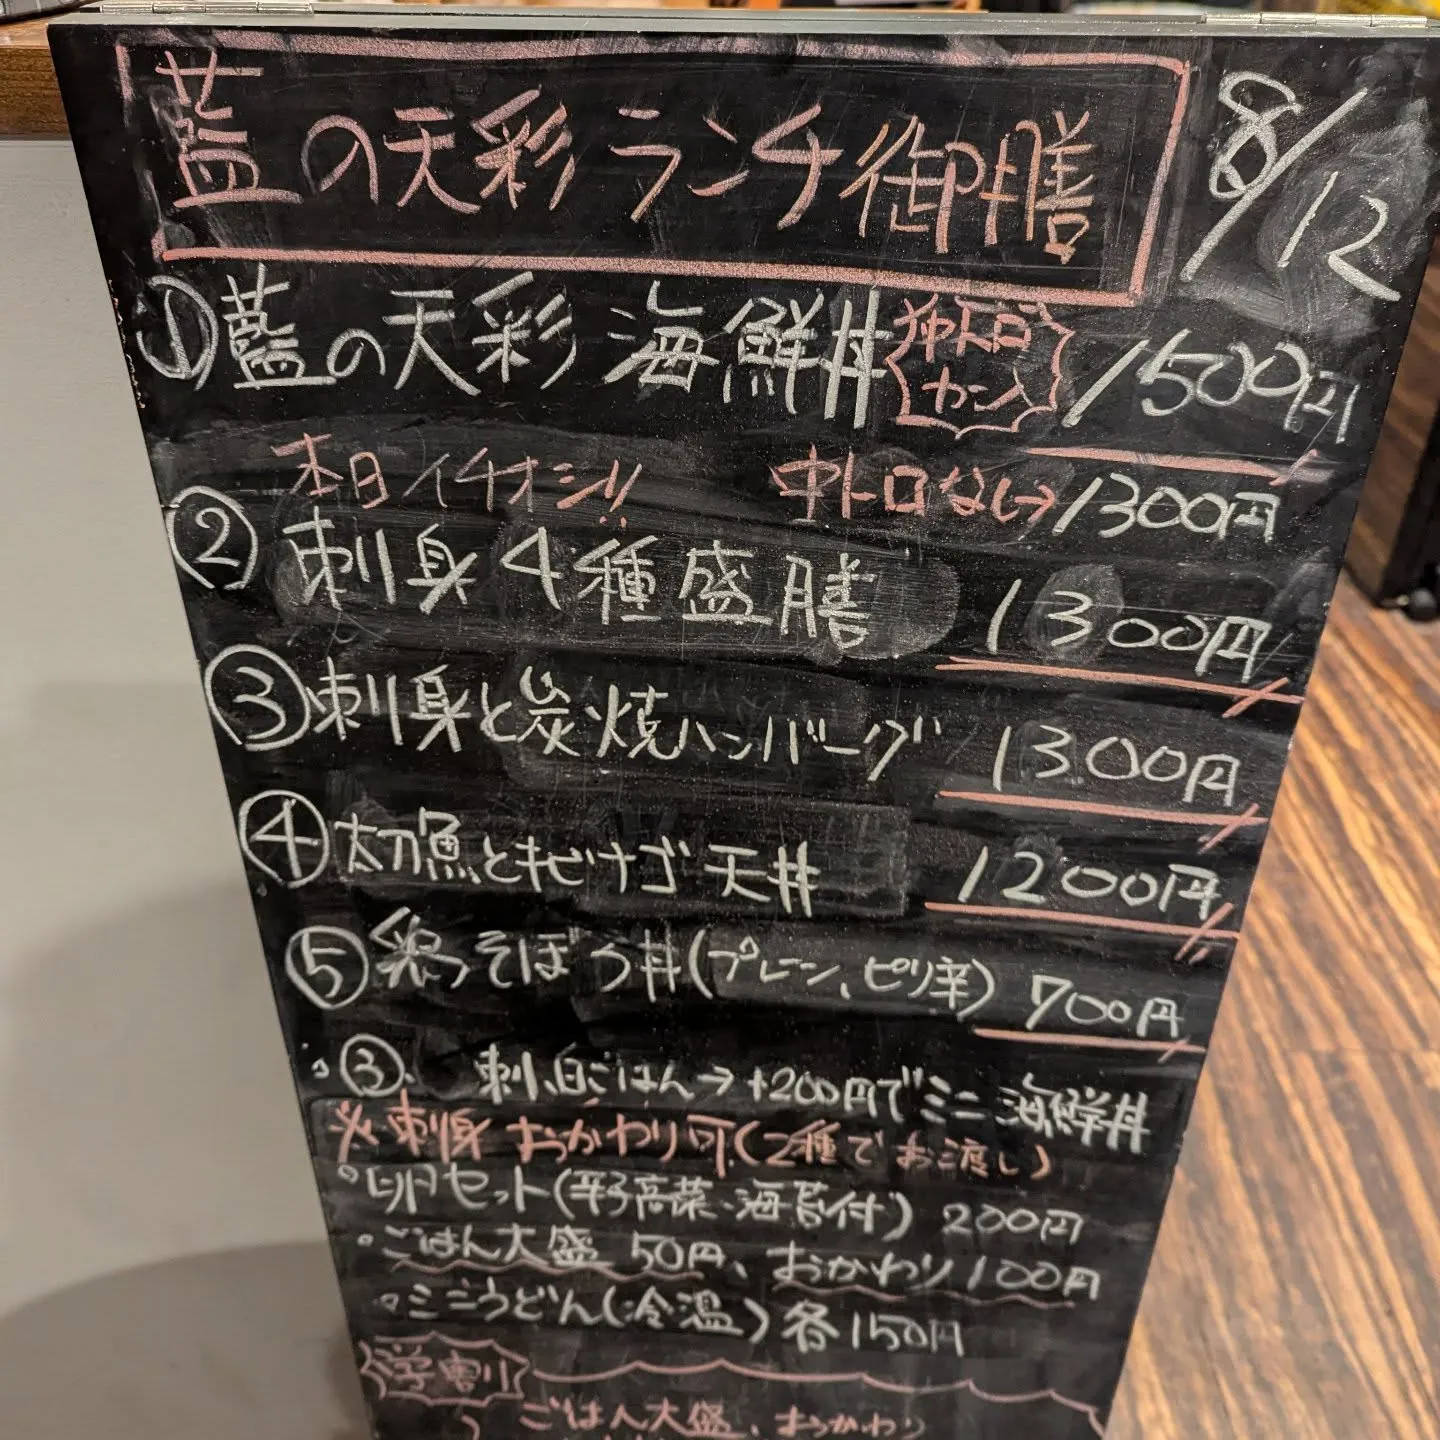 藍の天彩ランチ御膳
8/12
①藍の天彩 海鮮丼 1500円
本日イチオシ!! 中トロなし→1300円
②刺身4種盛膳 1300円
③刺身と炭焼ハンバーグ 1300円
④太刀魚とキビナゴ天丼 1200円
⑤彩っそぼろ丼(プレーン、ピリ辛) 700円
③ 刺、白ごはん→+200円でミニ海鮮丼
※刺身おかわり可(2種でお渡し)
卵セット(野子高菜、海苔付) 200円
ごはん大盛 50円、おかわり100円
ミニうどん(冷温)各150円
学割
ごはん大盛、おかわり